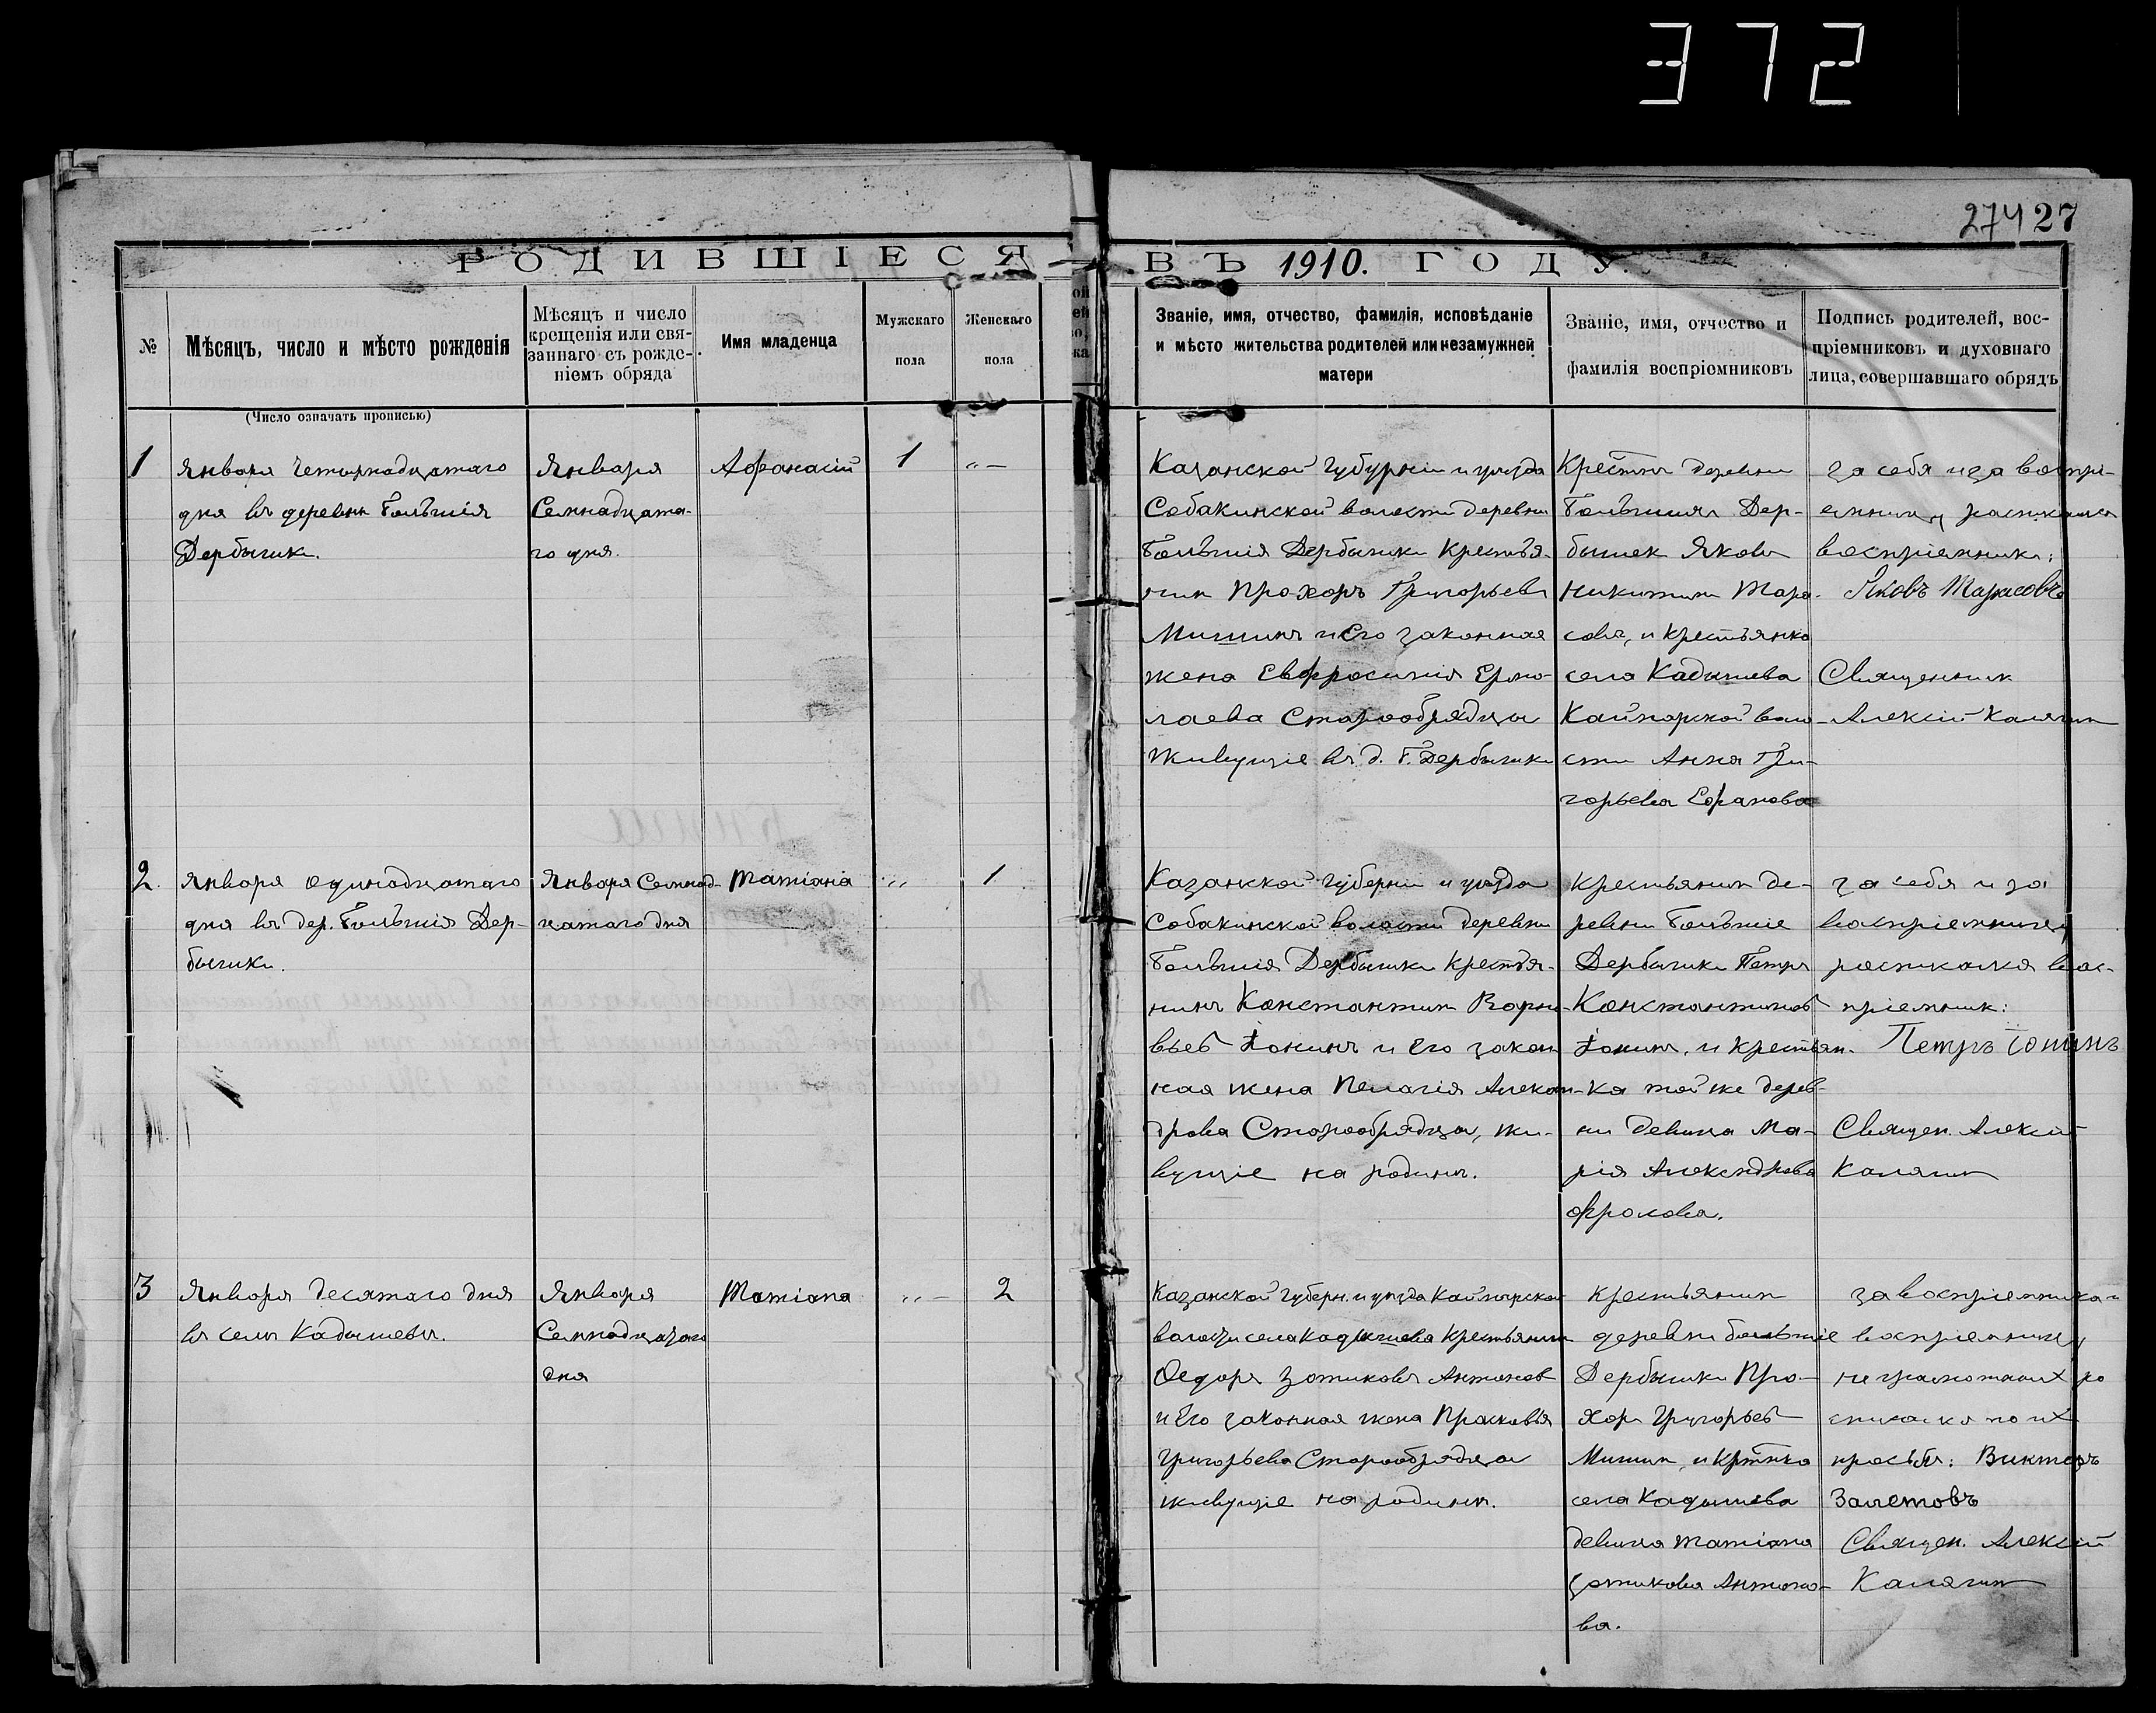 372
274 27
РОДИВШІЕСЯ ВЪ 1910. ГОДУ.
№
Мѣсяцъ, число и мѣсто рожденія
Мѣсяцъ и число
крещенія или свя-
заннаго съ рожде-
ніемъ обряда
Имя младенца
Мужскаго
пола
Женскаго
пола
Званіе, имя, отчество, фамилія, исповѣданіе
и мѣсто жительства родителей или незамужней
матери
Званіе, имя, отчество и
фамилія воспріемниковъ
Подпись родителей, вос-
пріемниковъ и духовнаго
лица, совершавшаго обрядъ
(Число означать прописью)
1
Января четырнадцатаго
дня въ деревнѣ Большія
Дербышки.
Января
Семнадцата-
го дня.
Афанасій
1
"—
Казанской губурніи и уѣзда
Собакинской волости деревни
Большія Дербышки Крестья-
нин Прохоръ Григорьевъ
Мишинъ и Его законная
жена Евфросинія Ермо-
лаева Старообрядцы
Живущіе въ д. Б. Дербышки
Крестнъ деревни
Большихъ Дер-
бышек Яковъ
Никитин Тара-
совъ, и крестьянка
села Кадышева
Каймарской воло-
сти Анна Гри-
горьева Ефранова
за себя и за воспри-
емницу росписался
воспріемник:
Яковъ Тарасовъ
Священник
Алексій Калягин
2
Января одинадцатаго
дня въ дер. Большія Дер-
бышки.
Января Семнад-
цатаго дня
Татіана
"
1
Казанской губерніи и уѣзда
Собакинской волости деревни
Большія Дербышки Крестья-
нинъ Константин
Іонинъ и Его закон
ная жена Пелагія Алексан-
дрова Старообрядцы, жи-
вущіе на родинѣ.
Крестьянин де-
ревни Большіе
Дербышки Петръ
Константиновъ
Іонинъ, и крестьян-
ка той же дерев-
ни девица Ма-
рія Александрова
Фролова.
за себя и за
воспріемницу
росписался вос-
пріемник:
Петръ Іонинъ
Священ. Алексій
Калягин
3
Января десятаго дня
въ селѣ Кадышевѣ.
Января
Семнадцатаго
дня
Татіана
"—
2
Казанской губерн. и уѣзда Каймарской
волости села Кадышева Крестьянин
Ѳедоръ Зотиковъ Антонов
и Его законная жена Прасковья
Григорьева Старообрядцы
живущіе на родинѣ.
Крестьянин
деревни большіе
Дербышки Про-
хоръ Григорьев
Мишин, и кртнка
села Кадышева
девица Татіана
Зотикова Антоно-
ва.
за воспріемника и
воспріемницу
неграмотных ро
списался по их
просьбѣ: Викторъ
Залетовъ
Священ. Алексій
Калягин